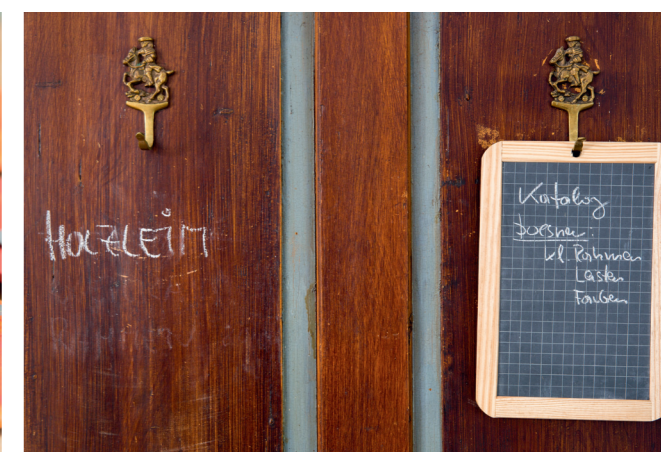 HOLZLEIM
Katalog
boesner:
kl. Rahmen
Leisten
Farben